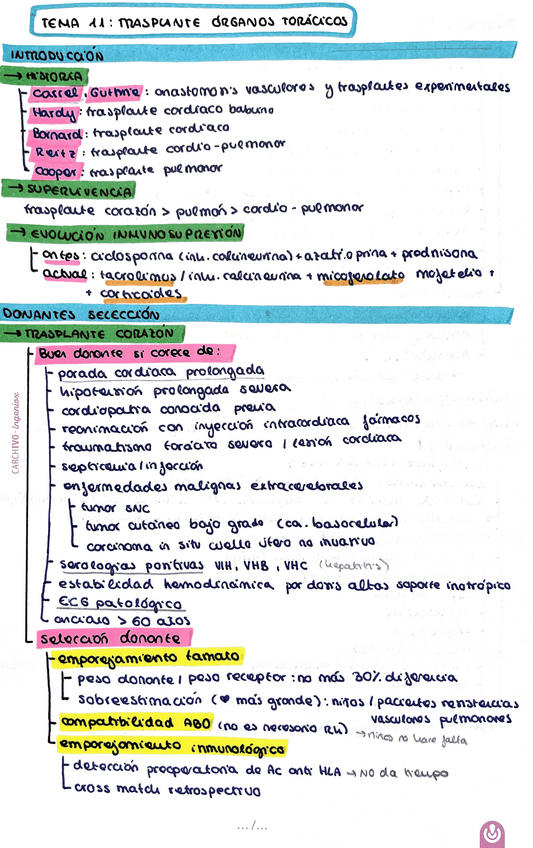 TEMA 11: TRASPLANTE ÓRGANOS TORÁCICOS
INTRODUCCIÓN
→ HISTORIA
Carrel, Guthrie: anastomosis vasculares y trasplantes experimentales
Hardy: trasplante cordíaco babuino
Barnard: trasplante cardíaco
Reitz: trasplante cardio-pulmonar
Cooper: trasplante pulmonar
→ SUPERVIVENCIA
trasplante corazón > pulmón > cardio-pulmonar
→ EVOLUCIÓN INMUNOSUPRESIÓN
antes: ciclosporina (inh. calcineurina) + azatioprina + prednisona
actual: tacrolimus / inh. calcineurina + micofenolato mofetilo +
+ corticoides
DONANTES SELECCIÓN
→ TRASPLANTE CORAZÓN
Buen donante si carece de:
parada cardíaca prolongada
hipotensión prolongada severa
cardiopatía conocida previa
reanimación con inyección intracardiaca fármacos
traumatismo torácico severo / lesión cardíaca
septicemia / infección
enfermedades malignas extracerebrales
tumor SNC
tumor cutáneo bajo grado (ca. basocelular)
carcinoma in situ cuello útero no invasivo
serologías positivas VIH, VHB, VHC (hepatitis)
estabilidad hemodinámica por dosis altas soporte inotrópico
ECG patológico
anciano > 60 años
Selección donante
emparejamiento tamaño
peso donante / peso receptor: no más 30% diferencia
sobreestimación (♥ más grande): niños / pacientes resistencias
vasculares pulmonares
compatibilidad ABO (no es necesario Rh) → niños no hace falta
emparejamiento inmunológico
detección preoperatoria de Ac anti HLA → NO da tiempo
cross match retrospectivo
CARCHIVO - Ingenion
.../...